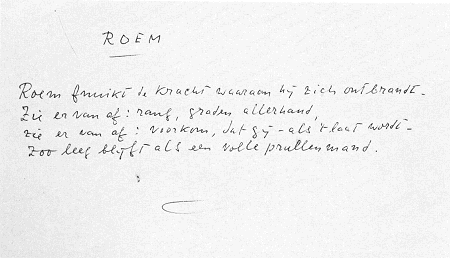 ROEM
Roem fnuikt de kracht waaraan hij zich ontbrandt -
Zie er van af: rang, graden allerhand,
zie er van af: voorkom, dat gij - als 't laat wordt -
Zoo leeg blijft als een volle prullenmand.